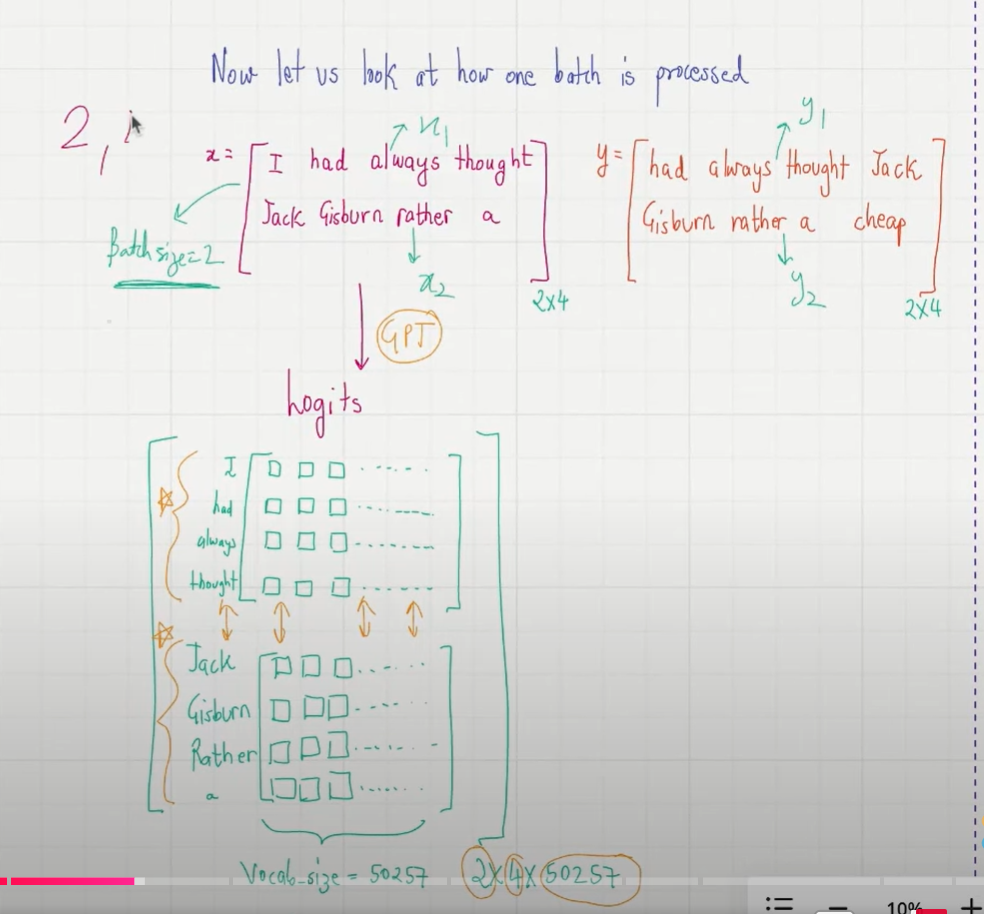 Now let us look at how one batch is processed
2,
x1
y1
x = I had always thought
Jack Gisburn rather a
y = had always thought Jack
Gisburn rather a cheap
Batch size = 2
x2
2x4
y2
2x4
GPT
Logits
I
had
always
thought
Jack
Gisburn
Rather
a
Vocab_size = 50257
2x4x50257
10%